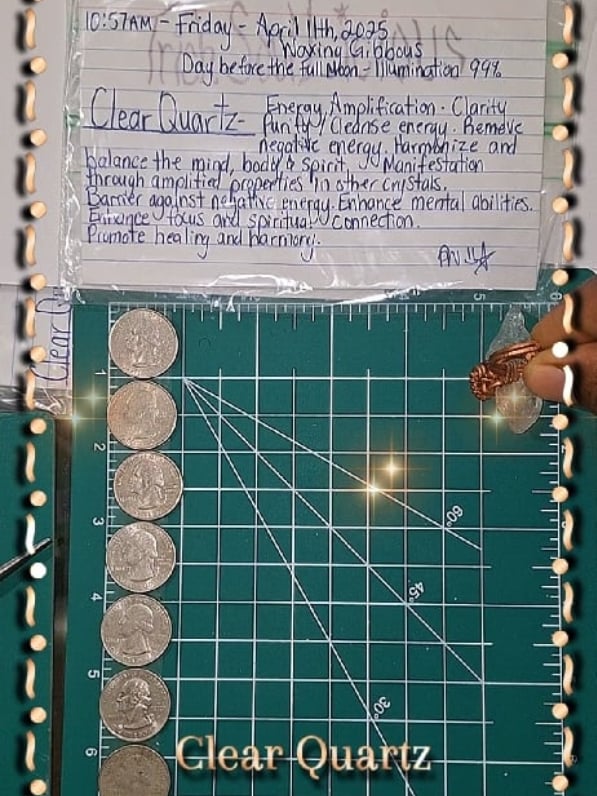 10:57AM - Friday - April 11th, 2025
Waxing Gibbous
Day before the Full Moon - Illumination 99%
Clear Quartz - Energy Amplification · Clarity
Purity / Cleanse energy · Remove
negative energy. Harmonize and
balance the mind, body & spirit. Manifestation
through amplified properties in other crystals.
Barrier against negative energy. Enhance mental abilities.
Enhance focus and spiritual connection.
Promote healing and harmony.
Clear Q
5
6
1
2
3
4
5
6
60°
45°
30°
Clear Quartz